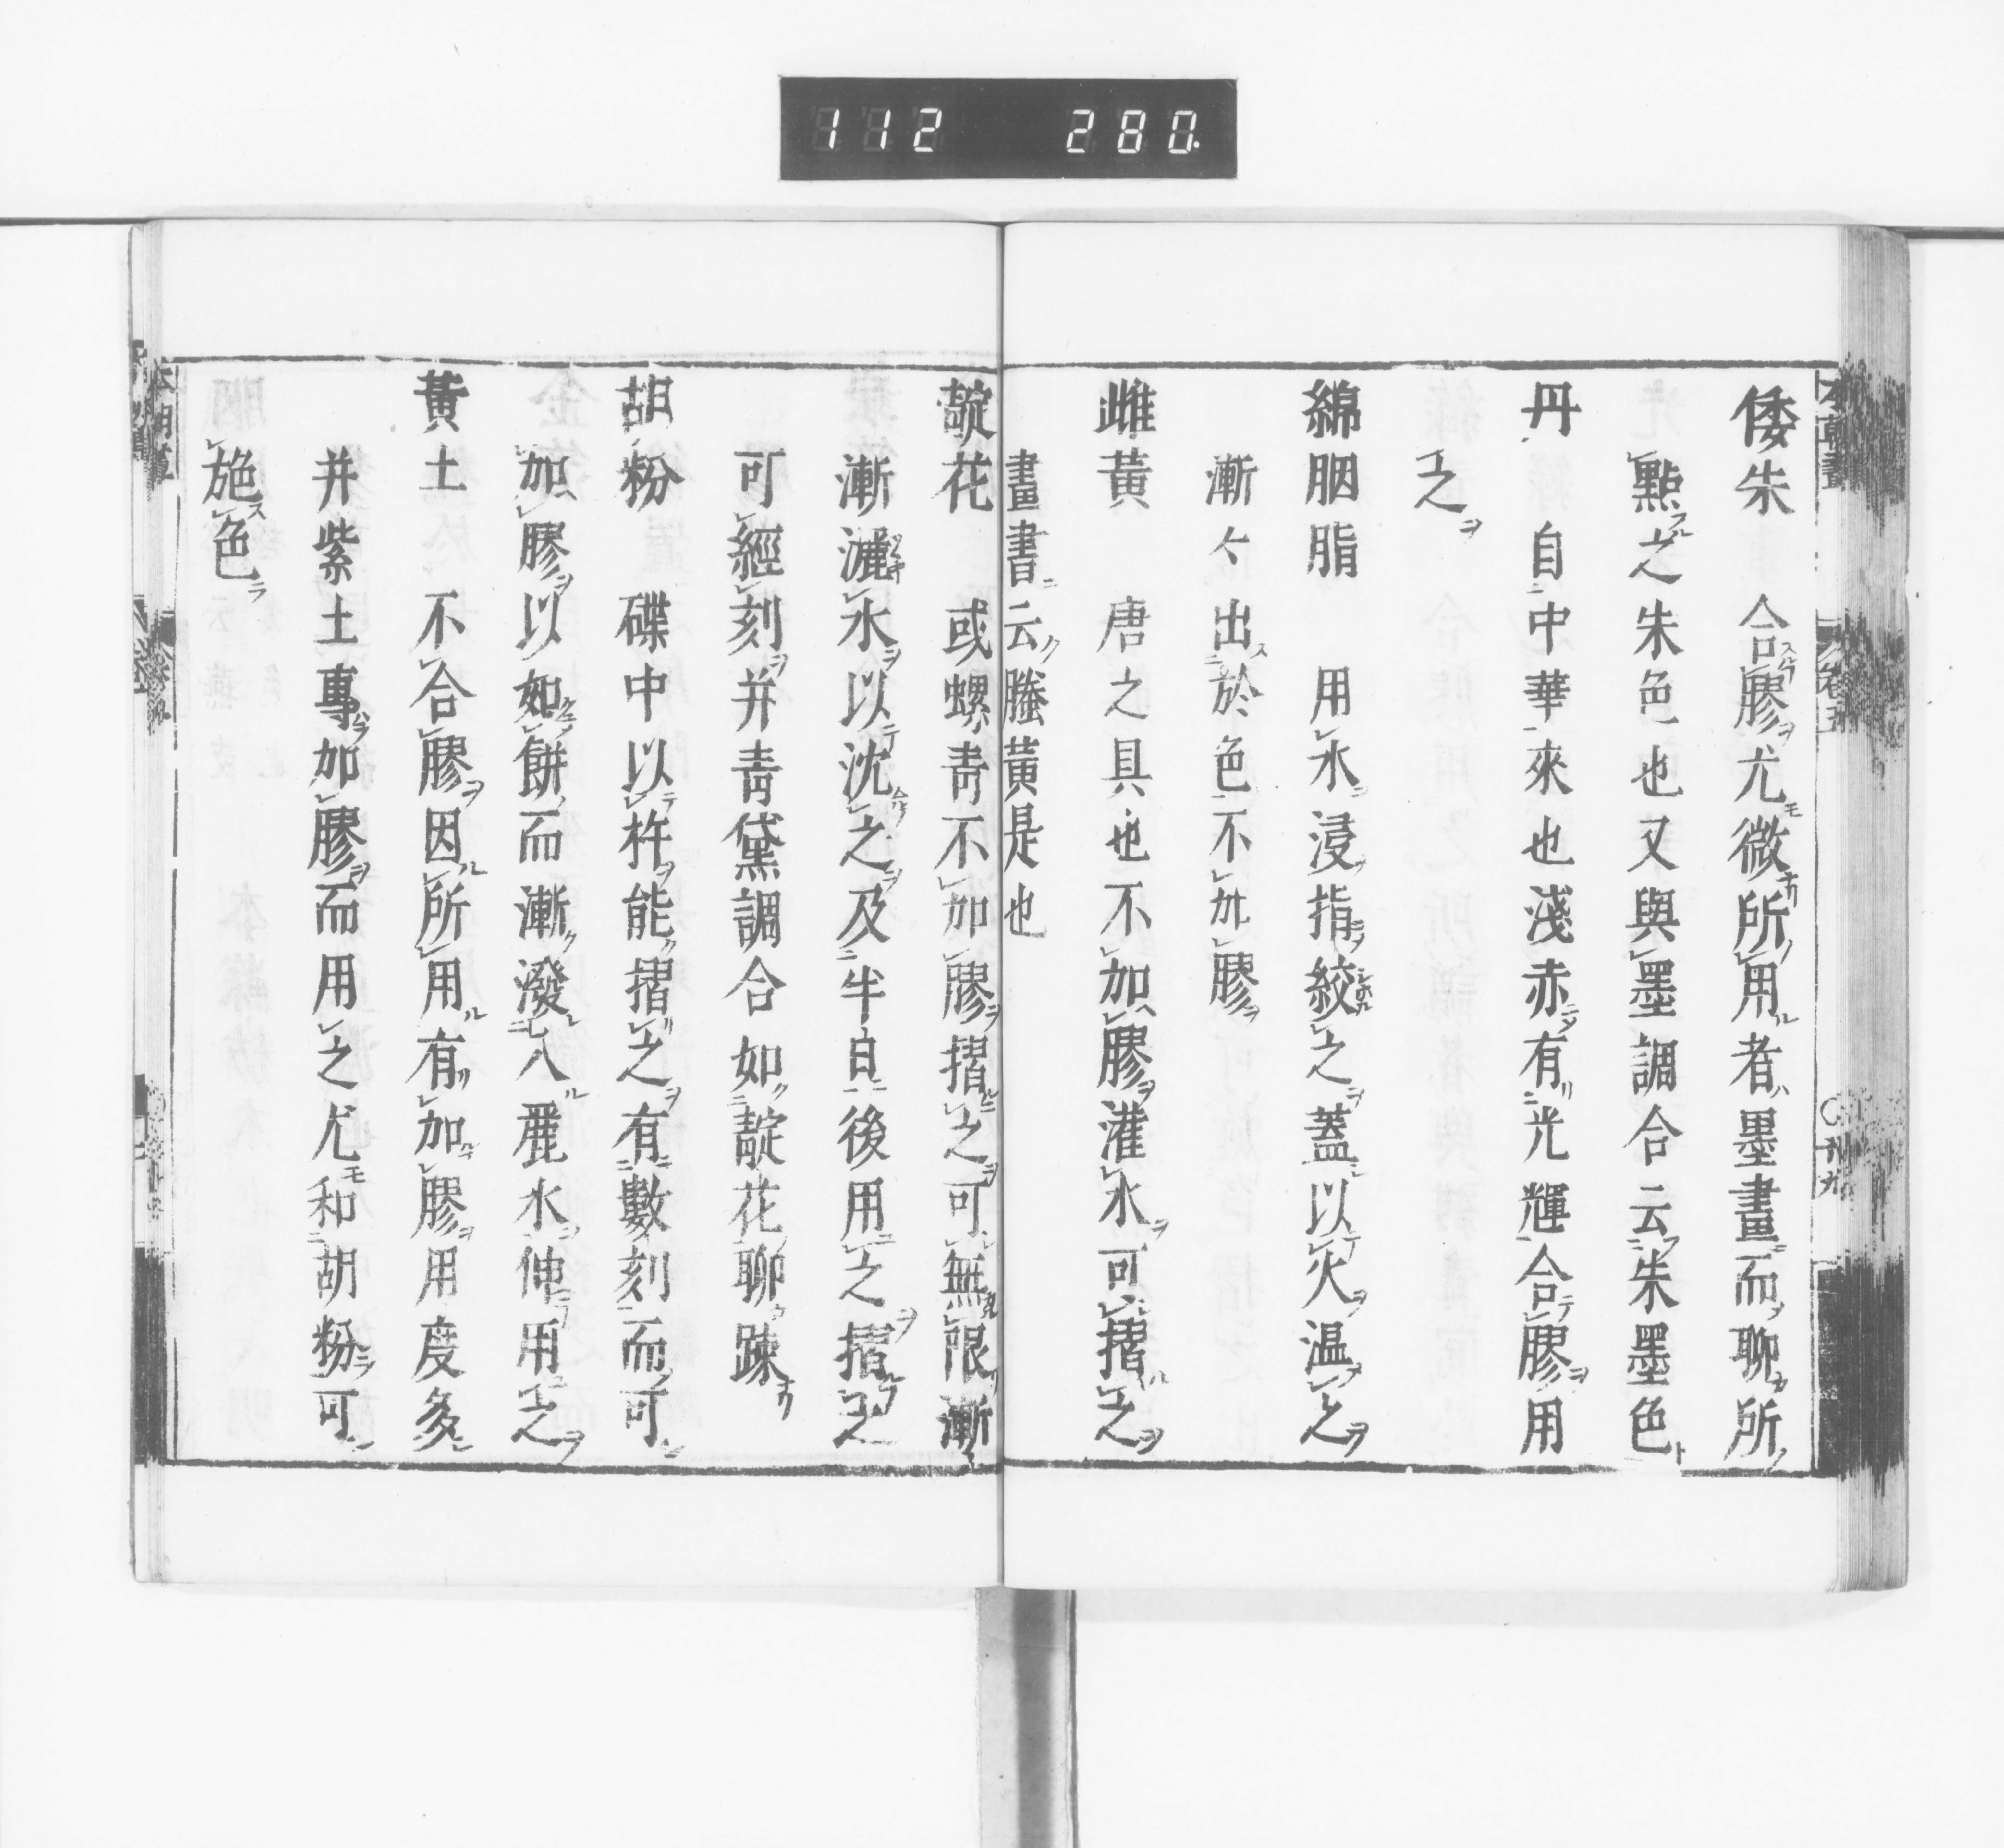 112 280.
倭朱 合膠尤微所用者墨畫而聊所
點之朱色也又與墨調合云朱墨色
丹 自中華來也淺赤有光輝合膠用
之
綿胭脂 用水浸指絞之蓋以火温之
漸々出於色不加膠
雌黄 唐之具也不加膠灌水可摺之
畫書云螣黄是也
靛花 或螺青不加膠摺之可無限漸
漸灑水以沈之及半白後用之摺之
可經刻并青黛調合如靛花聊踈
胡粉 碟中以杵能摺之有數刻而可
加膠以如餅而漸潑入麗水伸用之
黄土 不合膠因所用有加膠用度多
并紫土專加膠而用之尤和胡粉可
施色